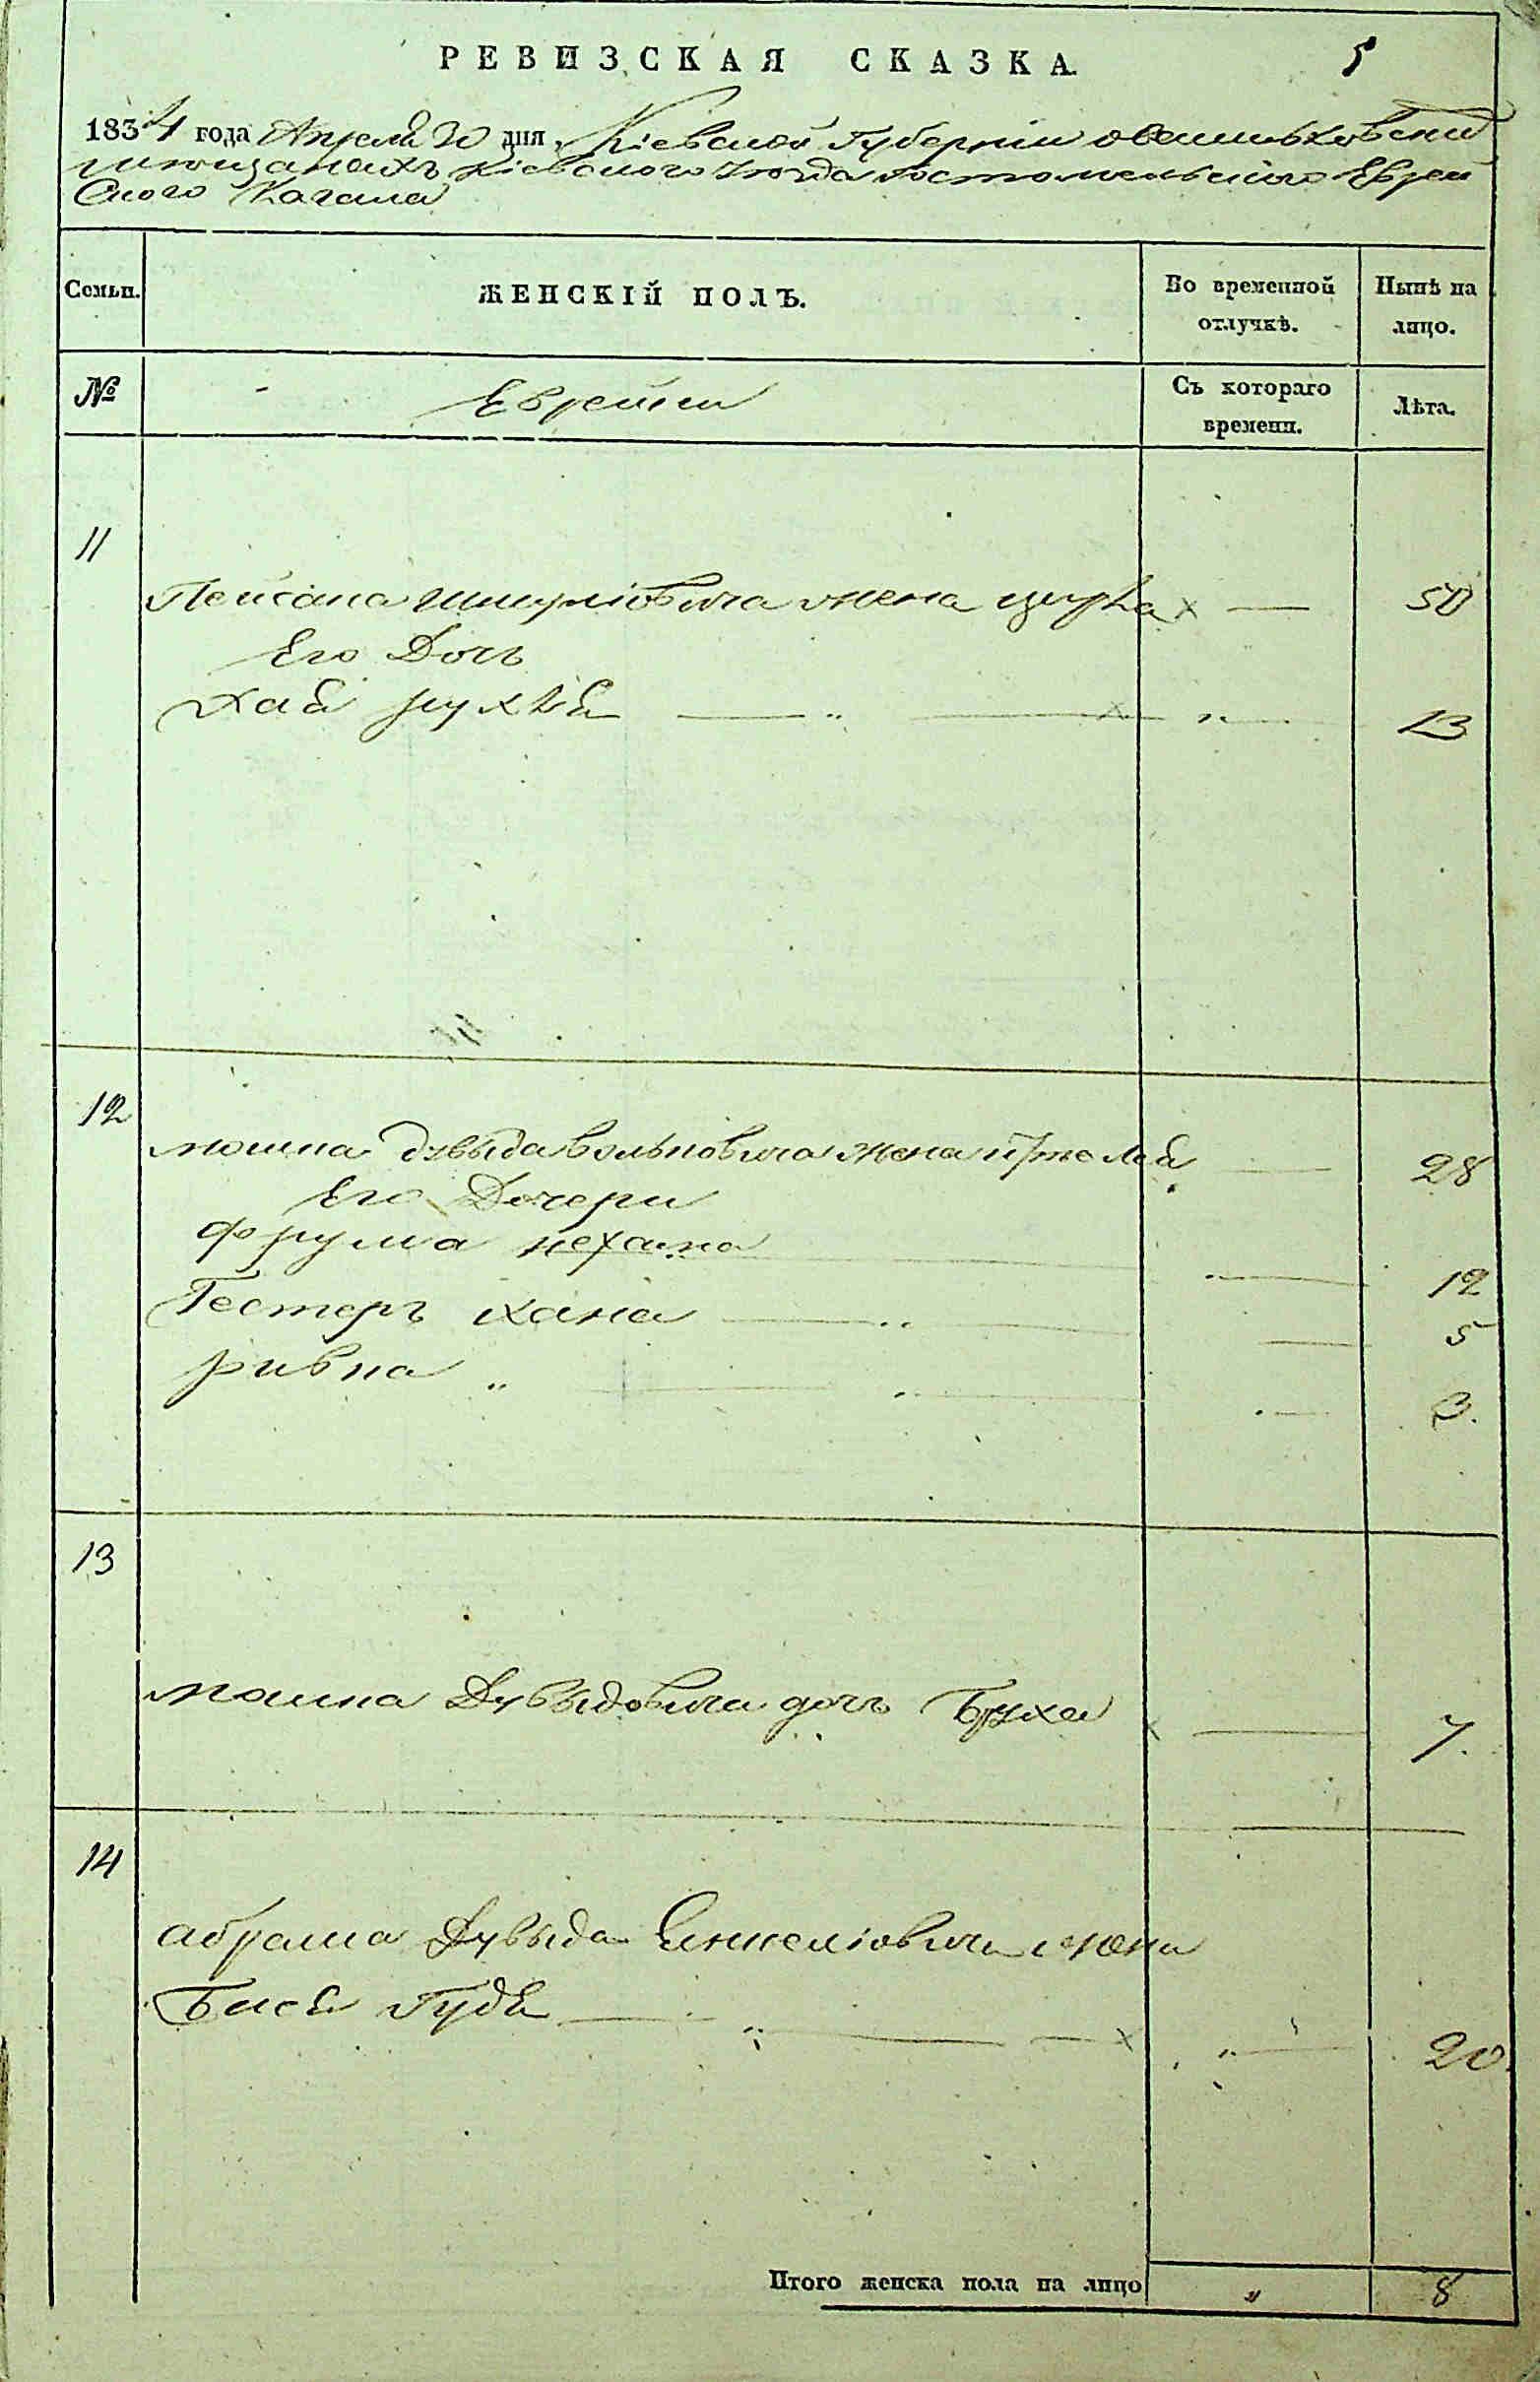 РЕВИЗСКАЯ СКАЗКА
5
1834 года Апреля 30 дня, Кіевской Губерніи о васильковских
мещанахъ Кіевского уезда гостомельского Еврей
ского Кагала
Семьи.
ЖЕНСКІЙ ПОЛЪ.
Во временной отлучкѣ.
Нынѣ на лицо.
№
Еврейки
Съ котораго времени.
Лѣта.
11
Пейсаха Шмулёвича жена x — 50
Его Дочь
Хая рухля — " — x " — 13
12
мошка дувыда вольковича жена — 28
Его Дочери
фрума нехама — 12
Гестеръ хана — " — 5
ривка " — " — 3.
13
мошка Дувыдовича дочь Бруха x — 7.
14
абрама Дувыда Янкеліовича жена
Бася Гудя — " — x " — 20.
Итого женска пола на лицо " 8